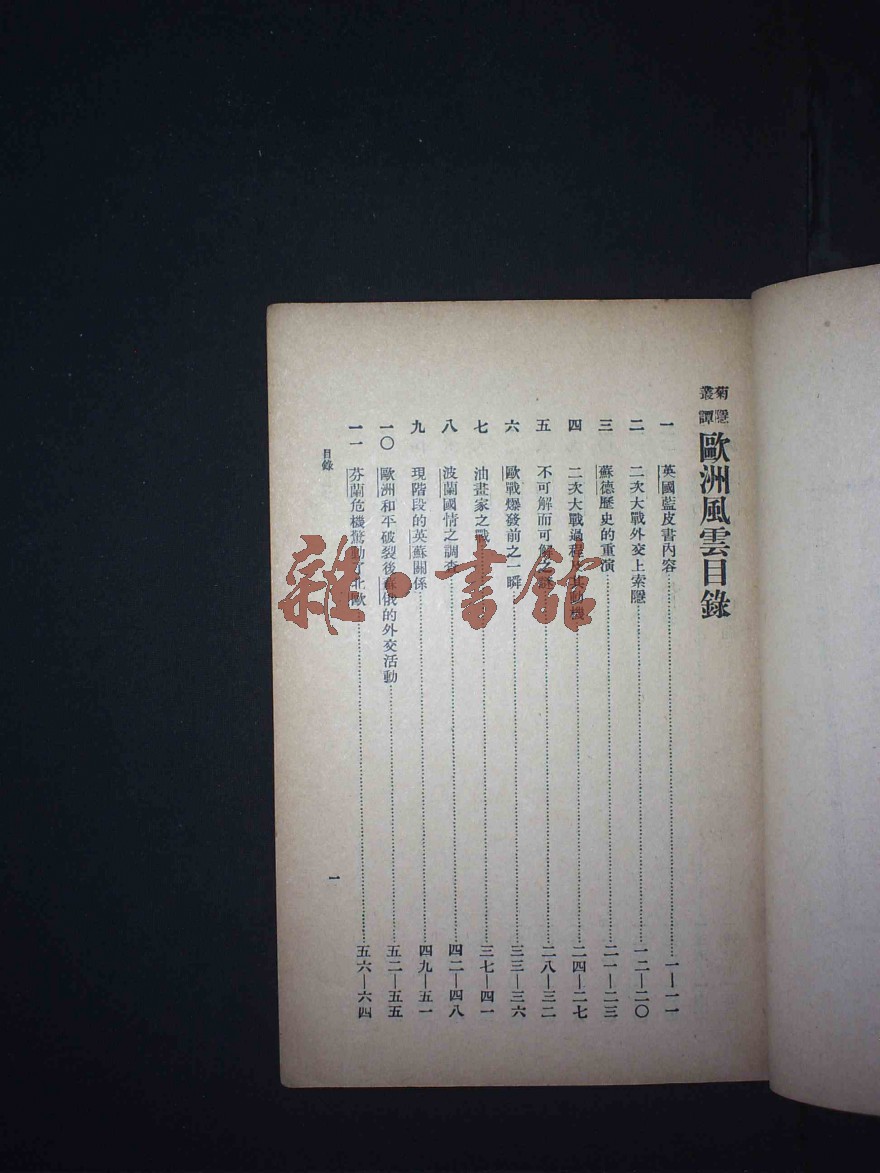 菊隱叢譚 歐洲風雲目錄
一 英國藍皮書內容 一—一一
二 二次大戰外交上索隱 一二—二〇
三 蘇德歷史的重演 二一—二三
四 二次大戰過程及其動機 二四—二七
五 不可解而可解之謎 二八—三二
六 歐戰爆發前之一瞬 三三—三六
七 油畫家之戰 三七—四一
八 波蘭國情之調查 四二—四八
九 現階段的英蘇關係 四九—五一
一〇 歐洲和平破裂後蘇俄的外交活動 五二—五五
一一 芬蘭危機驚動了北歐 五六—六四
目錄
一
雜·書館